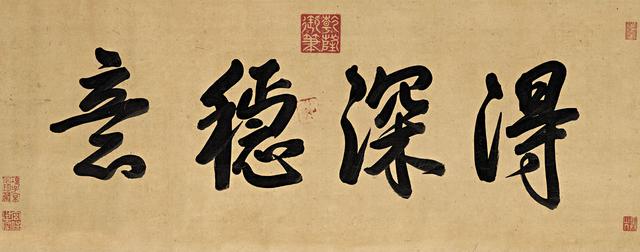 乾隆御筆
得深穩意